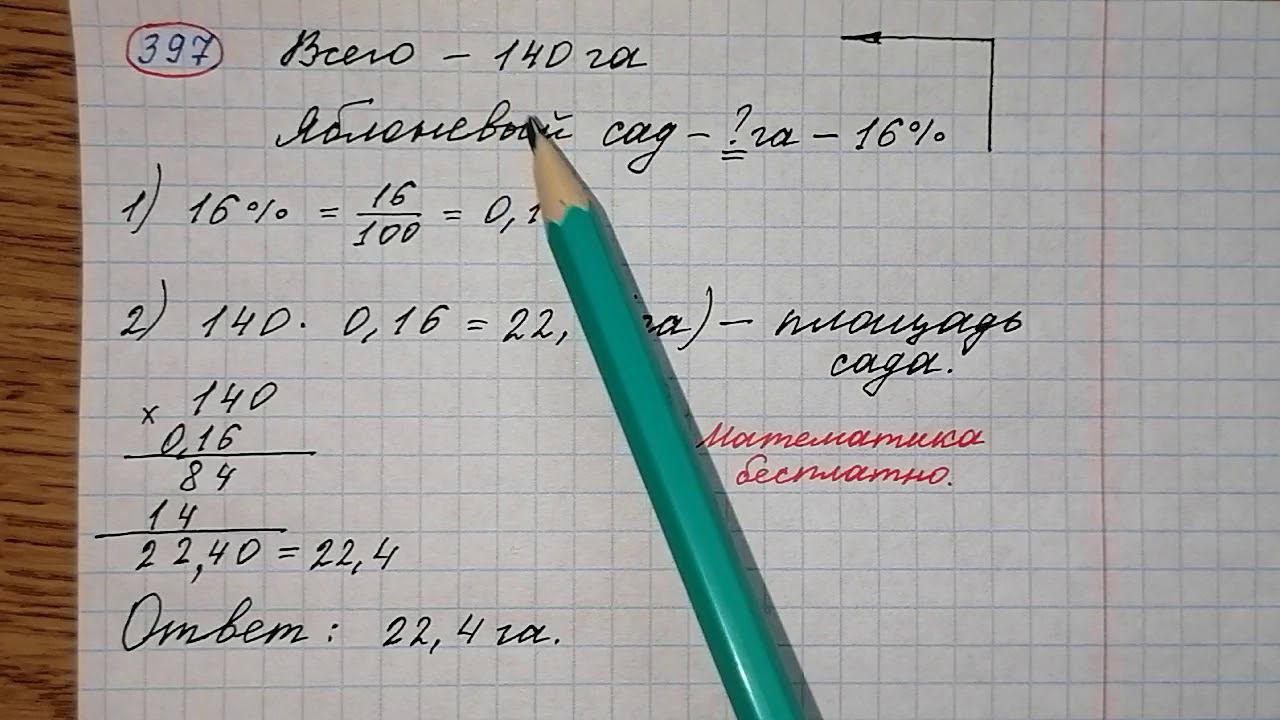 397 Всего – 140 га
Яблоневый сад – ? га – 16%
1) 16% = 16/100 = 0,1
2) 140 · 0,16 = 22, га) – площадь
сада.
× 140
0,16
84
14
22,40 = 22,4
Математика
бесплатно.
Ответ: 22,4 га.